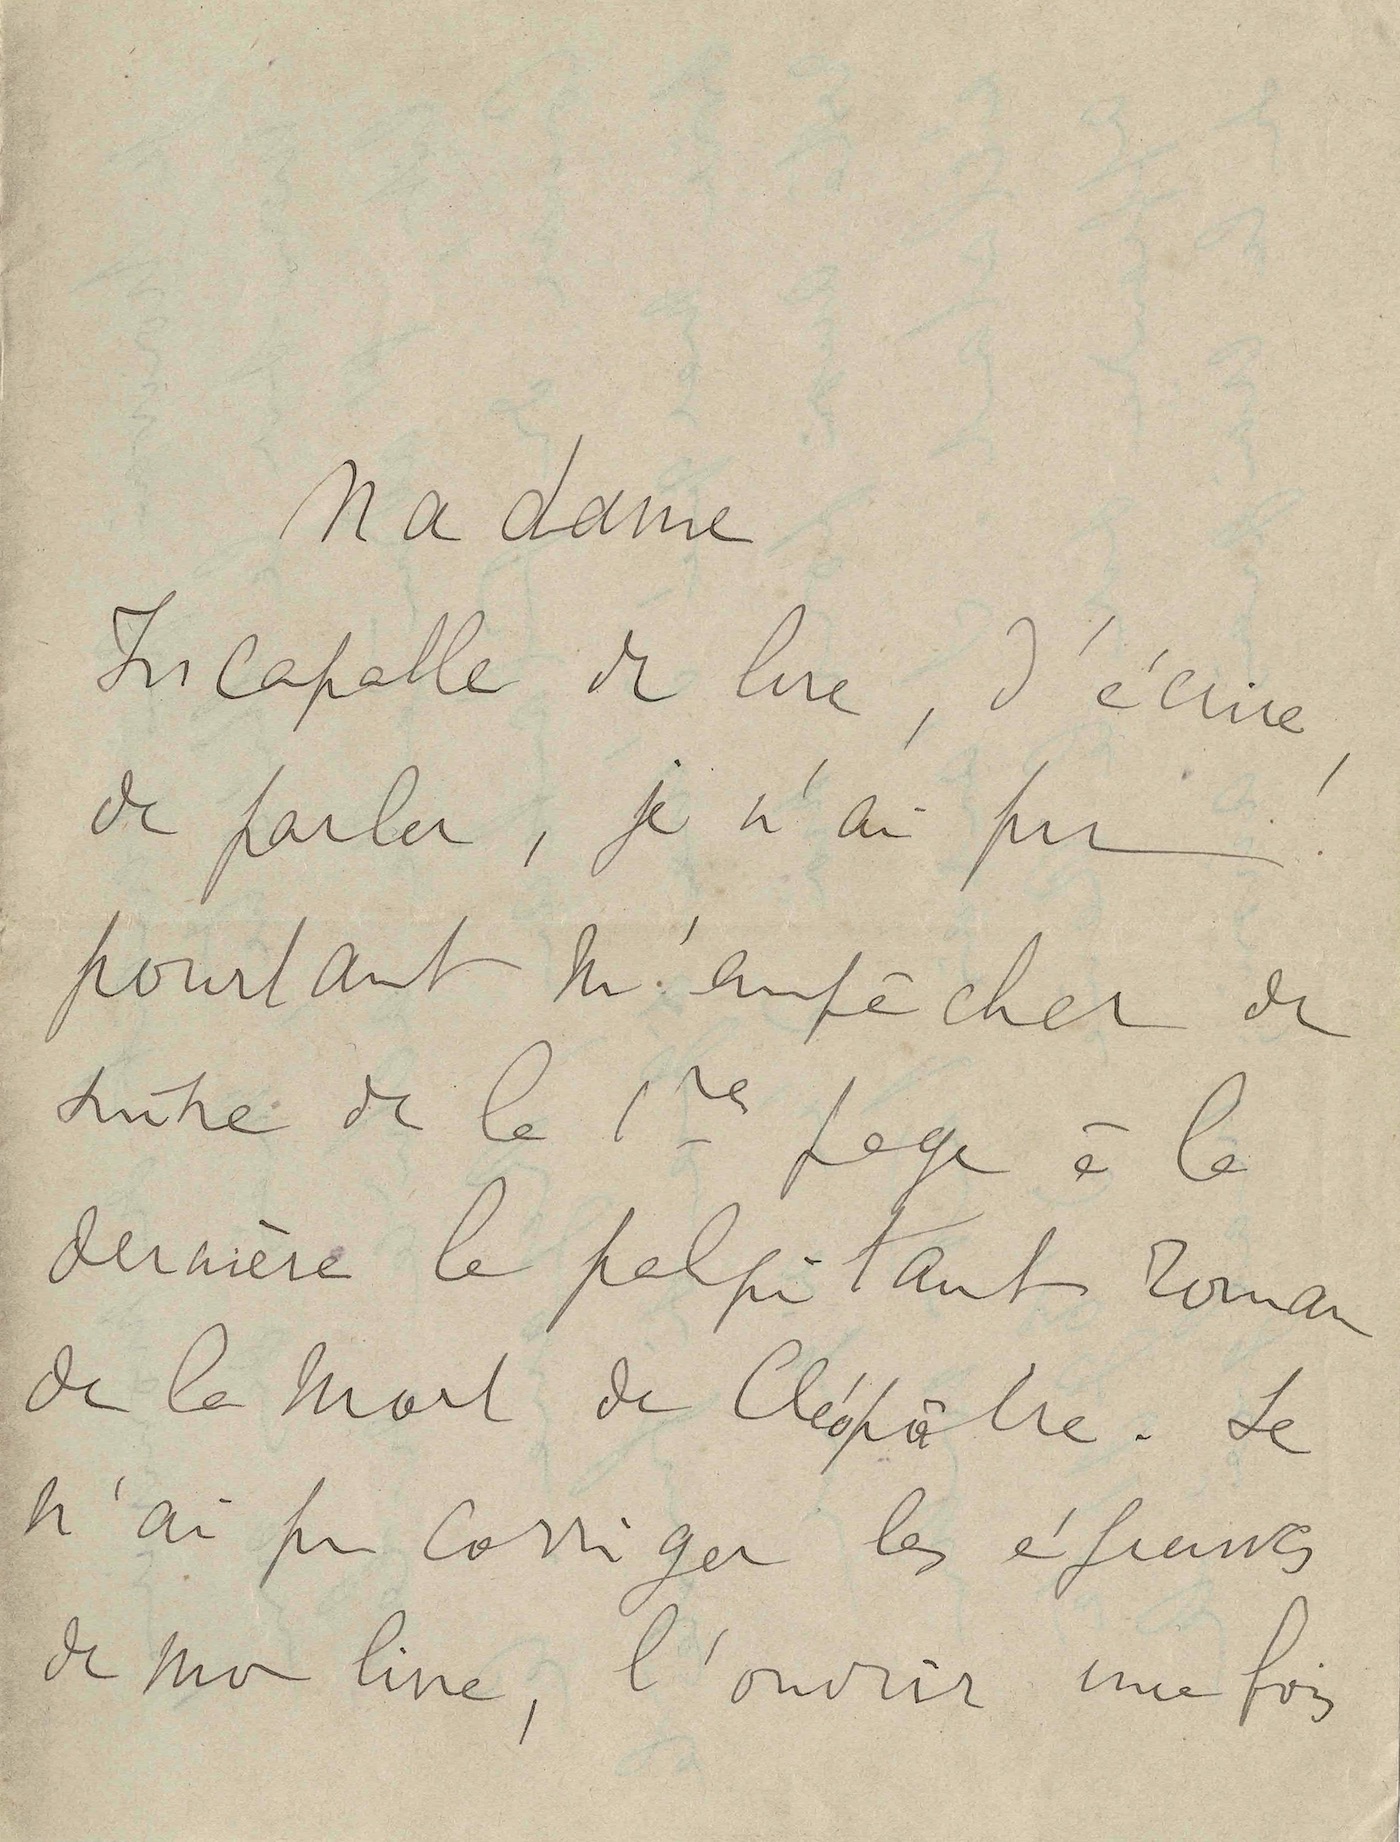 Madame
Incapable de lire, d'écrire,
de parler, je n'ai pu
pourtant m'empêcher de
suivre de la 1re page à la
dernière le palpitant roman
de la Mort de Cléopâtre. Je
n'ai pu corriger les épreuves
de mon livre, l'ouvrir une fois